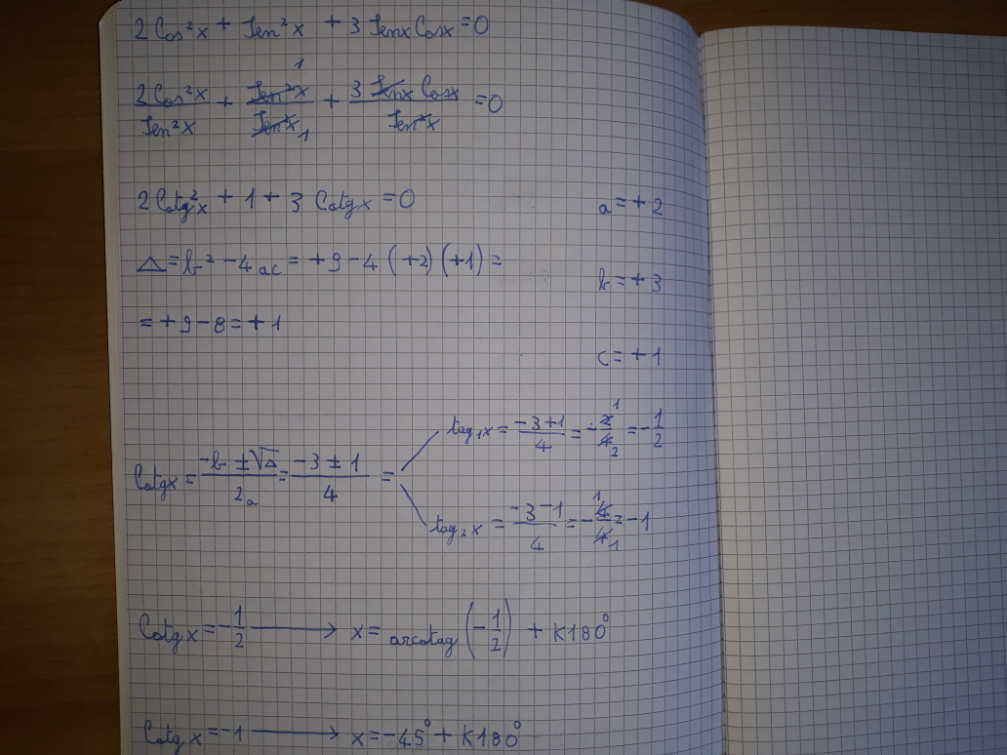 2 Cos²x + Sen²x + 3 Senx Cosx = 0
2 Cos²x / Sen²x + Sen²x / Sen²x + 3 Senx Cosx / Sen²x = 0
2 Cotg²x + 1 + 3 Cotgx = 0
a = + 2
Δ = b² - 4ac = + 9 - 4 (+2) (+1) =
b = + 3
= + 9 - 8 = + 1
c = + 1
Cotgx = -b ± √Δ / 2a = -3 ± 1 / 4 =
tag₁x = -3+1 / 4 = - 2/4 = - 1/2
tag₂x = -3-1 / 4 = - 4/4 = -1
Cotgx = - 1/2 → x = arcotag (- 1/2) + K180°
Cotgx = -1 → x = -45° + K180°